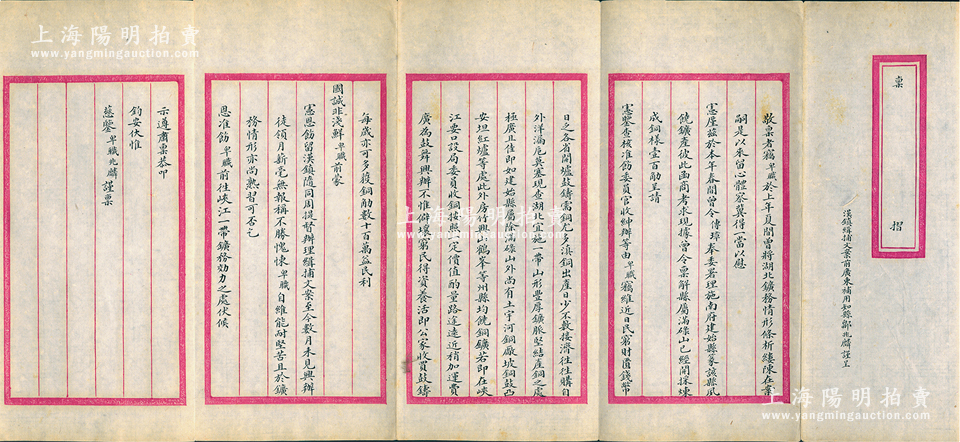 稟摺
漢鎮緝捕文案前廣東補用知縣鄒兆麟謹呈
敬稟者竊卑職於上年夏間曾將湖北鑛務情形條析縷陳在案
嗣是以來留心體察冀得一當以慰
憲廑茲於本年春間曾令傳璋奉委署理施南府建始縣篆該縣夙
饒鑛產彼此函商考求現據曾令稟解縣屬滿磉山已經開採煉
成銅樣壹百觔呈請
憲鑒查核准飭委員官收紳辦等由卑職竊維近日民窮財匱錢幣
日乏各省開壚鼓鑄需銅尤多滇銅出產日少不敷接濟往往購自
外洋漏卮莫塞現查湖北宜施一帶山形豐厚鑛脈堅結產銅之處
極廣且佳即如建始縣屬除滿磉山外尚有土宇河銅廠坡銅鼓凸
安坦紅墟等處此外房竹興山鶴峯等州縣均饒銅鑛若即在峽
江要口設局委員收銅按照一定價值酌量路途遠近稍加運費
廣為鼓舞興辦不惟僻壤窮民得資養活即公家收買鼓鑄
每歲亦可多獲銅觔數十百萬益民利
國誠非淺鮮卑職前蒙
憲恩飭留漢鎮隨同周提督辦理緝捕文案至今數月未見興辦
徒領月薪毫無報稱不勝愧悚卑職自維能耐堅苦且於鑛
務情形亦尚熟習可否乞
恩准飭卑職前往峽江一帶鑛務効力之處伏候
示遵肅稟恭叩
鈞安伏惟
慈鑒卑職兆麟謹稟
上海陽明拍賣
www.yangmingauction.com
上海陽明拍賣
www.yangmingauction.com